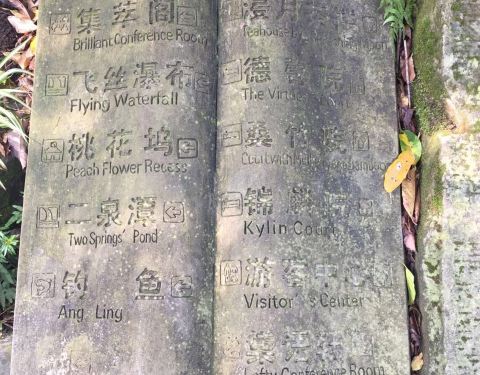 集萃阁
Brilliant Conference Room
飞丝瀑布
Flying Waterfall
桃花坞
Peach Flower Recess
二泉潭
Two Springs' Pond
钓鱼
Ang Ling
澄月
Teahouse
德
The
竹
Court with
锦
Kylin Court
游客中心
Visitor's Center
Lofty Conference Room